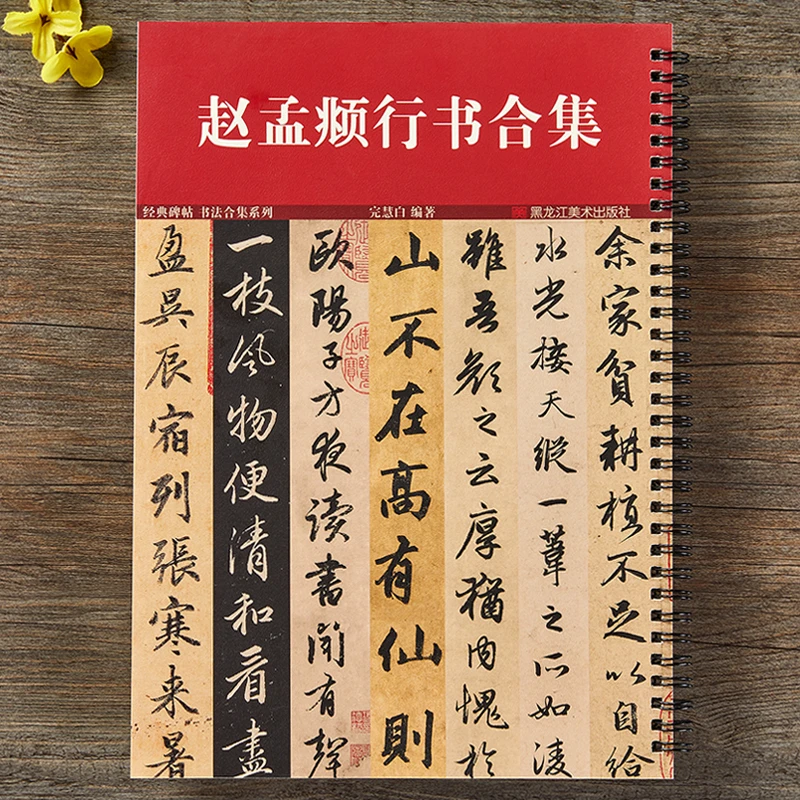 赵孟𫖯行书合集
经典碑帖 书法合集系列
完慧白 编著
黑龙江美术出版社
余家貧耕植不足以自給
水光接天縱一葦之所如淩
雖吾顏之云厚猶内愧於
山不在高有仙則
歐陽子方夜讀書聞有聲
一枝風物便清和看盡
盈昃辰宿列張寒来暑